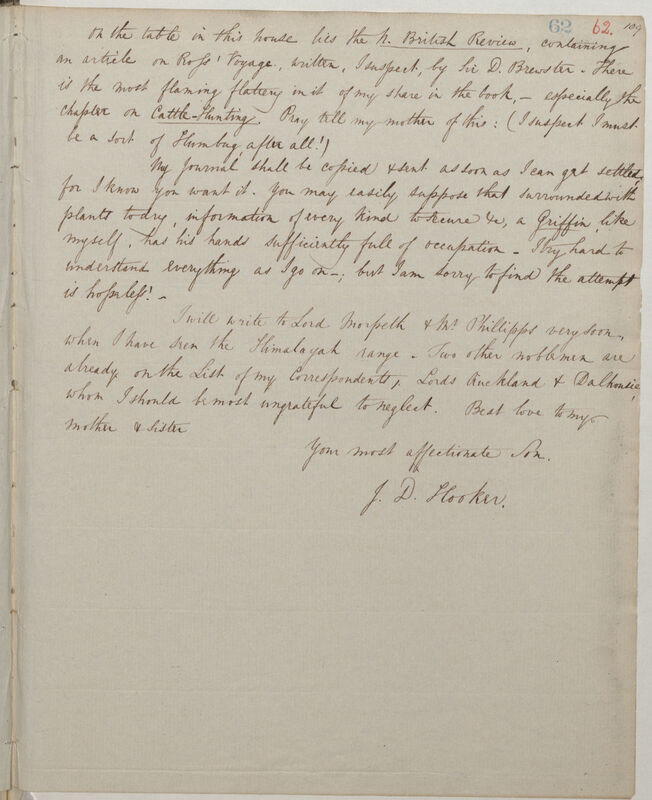 62 62. 109
on the table in this house lies the N. British Review, containing
an article on Ross' Voyage, written, I suspect, by Sir D. Brewster. There
is the most flaming flattery in it of my share in the book, — especially the
chapter on Cattle-Hunting. Pray tell my mother of this: (I suspect I must
be a sort of Humbug after all!)
My Journal shall be copied & sent as soon as I can get settled,
for I know you want it. You may easily suppose that surrounded with
plants to dry, information of every kind to secure &c, a Griffin, like
myself, has his hands sufficiently full of occupation — I try hard to
understand everything as I go on —; but I am sorry to find the attempt
is hopeless! —
I will write to Lord Morpeth & Mr. Phillipps very soon,
when I have seen the Himalayah range — Two other noblemen are
already on the List of my Correspondents, Lords Auckland & Dalhousie,
whom I should be most ungrateful to neglect. Best love to my
mother & sister
Your most affectionate Son.
J. D. Hooker.